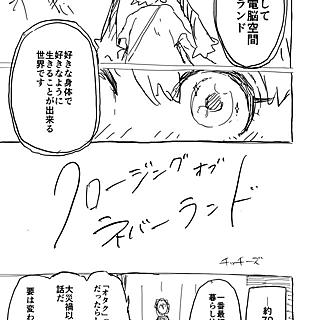 して
電脳空間
ランド
好きな身体で
好きなように
生きることが出来る
世界です
クロージングオブ
ネバーランド
チッチーズ
一番最
暮らし
「オタク」
だったらし
大災禍以
話だ
要は変わ